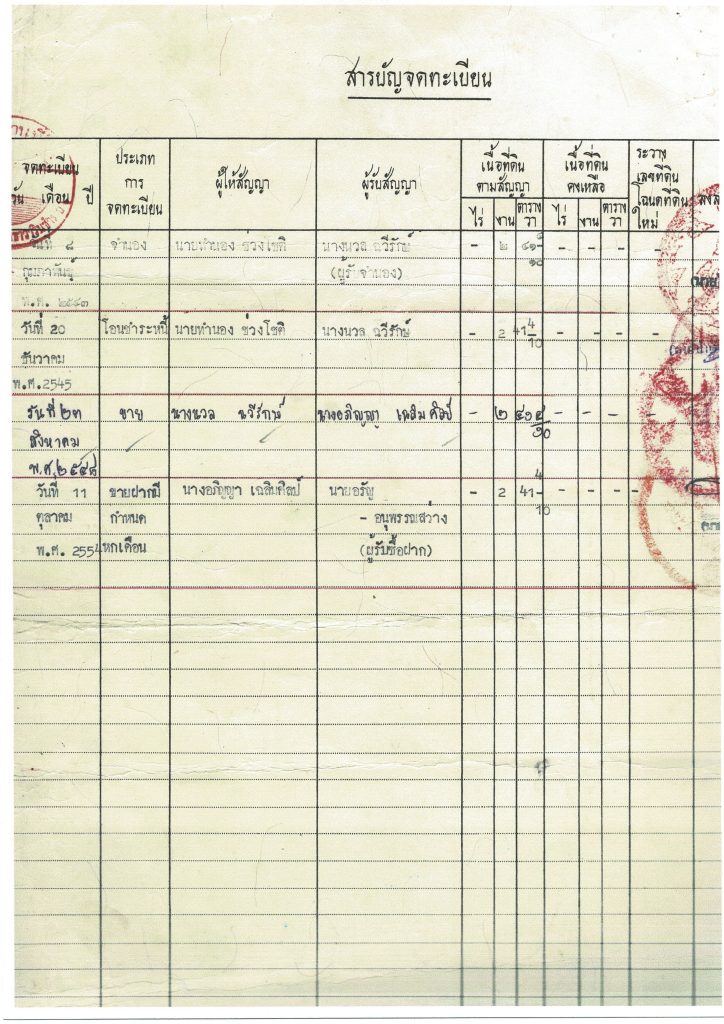 สารบัญจดทะเบียน
จดทะเบียน
วัน เดือน ปี
ประเภท
การ
จดทะเบียน
ผู้ให้สัญญา
ผู้รับสัญญา
เนื้อที่ดิน
ตามสัญญา
ไร่ งาน ตาราง
วา
เนื้อที่ดิน
คงเหลือ
ไร่ งาน ตาราง
วา
ระวาง
เลขที่ดิน
โฉนดที่ดิน
ใหม่
วันที่ ๘ จำนอง นายทำนอง ช่วงโชติ นางนวล ฉวีรักษ์ - ๒ ๔๑ - - - -
กุมภาพันธ์ (ผู้รับจำนอง) ๑๐
พ.ศ. ๒๕๔๓
วันที่ 20 โอนชำระหนี้ นายทำนอง ช่วงโชติ นางนวล ฉวีรักษ์ - 2 41 4/10 - - - -
ธันวาคม
พ.ศ.2545
วันที่ ๒๓ ขาย นางนวล ฉวีรักษ์ นางอภิญญา เฉลิมศิลป์ - ๒ ๔๑ ๔/๑๐ - - - -
สิงหาคม
พ.ศ. ๒๕๔๘
วันที่ 11 ขายฝากมี นางอภิญญา เฉลิมศิลป์ นายอรัญ - 2 41 4/10 - - - -
ตุลาคม กำหนด - อนุพรรณสว่าง
พ.ศ. 2554 หกเดือน (ผู้รับซื้อฝาก)